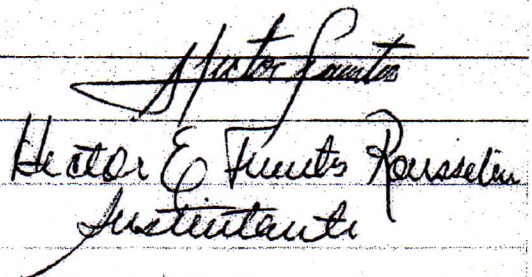 Hector Fuentes
Hector E Fuentes Rousselin
Sustentante